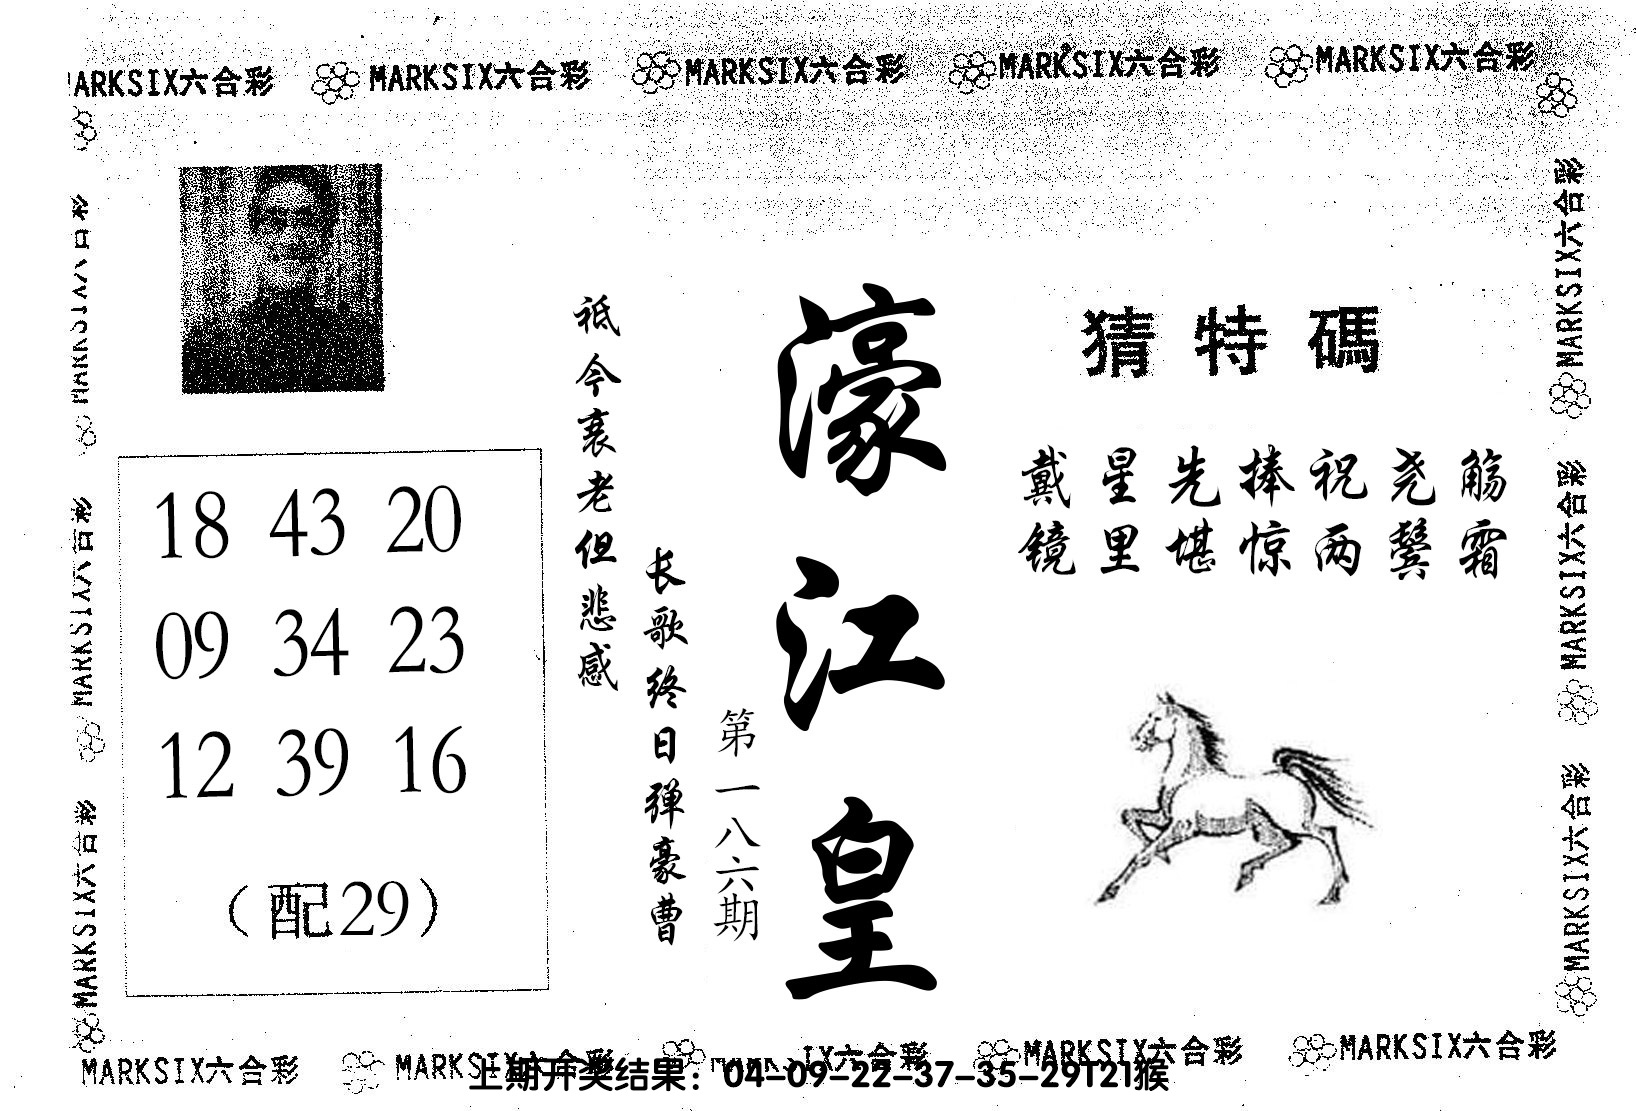 MARKSIX六合彩 MARKSIX六合彩 MARKSIX六合彩 MARKSIX六合彩
猜特碼
戴星先捧祝尧觞
镜里堪惊两鬓霜
濠江皇
第一八六期
长歌终日弹豪曹
祗今衰老但悲感
18 43 20
09 34 23
12 39 16
（配29）
MARKSIX六合彩
MARKSIX六合彩
MARKSIX六合彩
MARKSIX六合彩
MARKSIX六合彩
MARKSIX六合彩
MARKSIX六合彩 MARKSIX六合彩 MARKSIX六合彩 MARKSIX六合彩
上期开奖结果：04-09-22-37-35-29T21猴